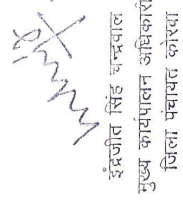 इंद्रजीत सिंह चन्द्रवाल
मुख्य कार्यपालन अधिकारी
जिला पंचायत कोरबा